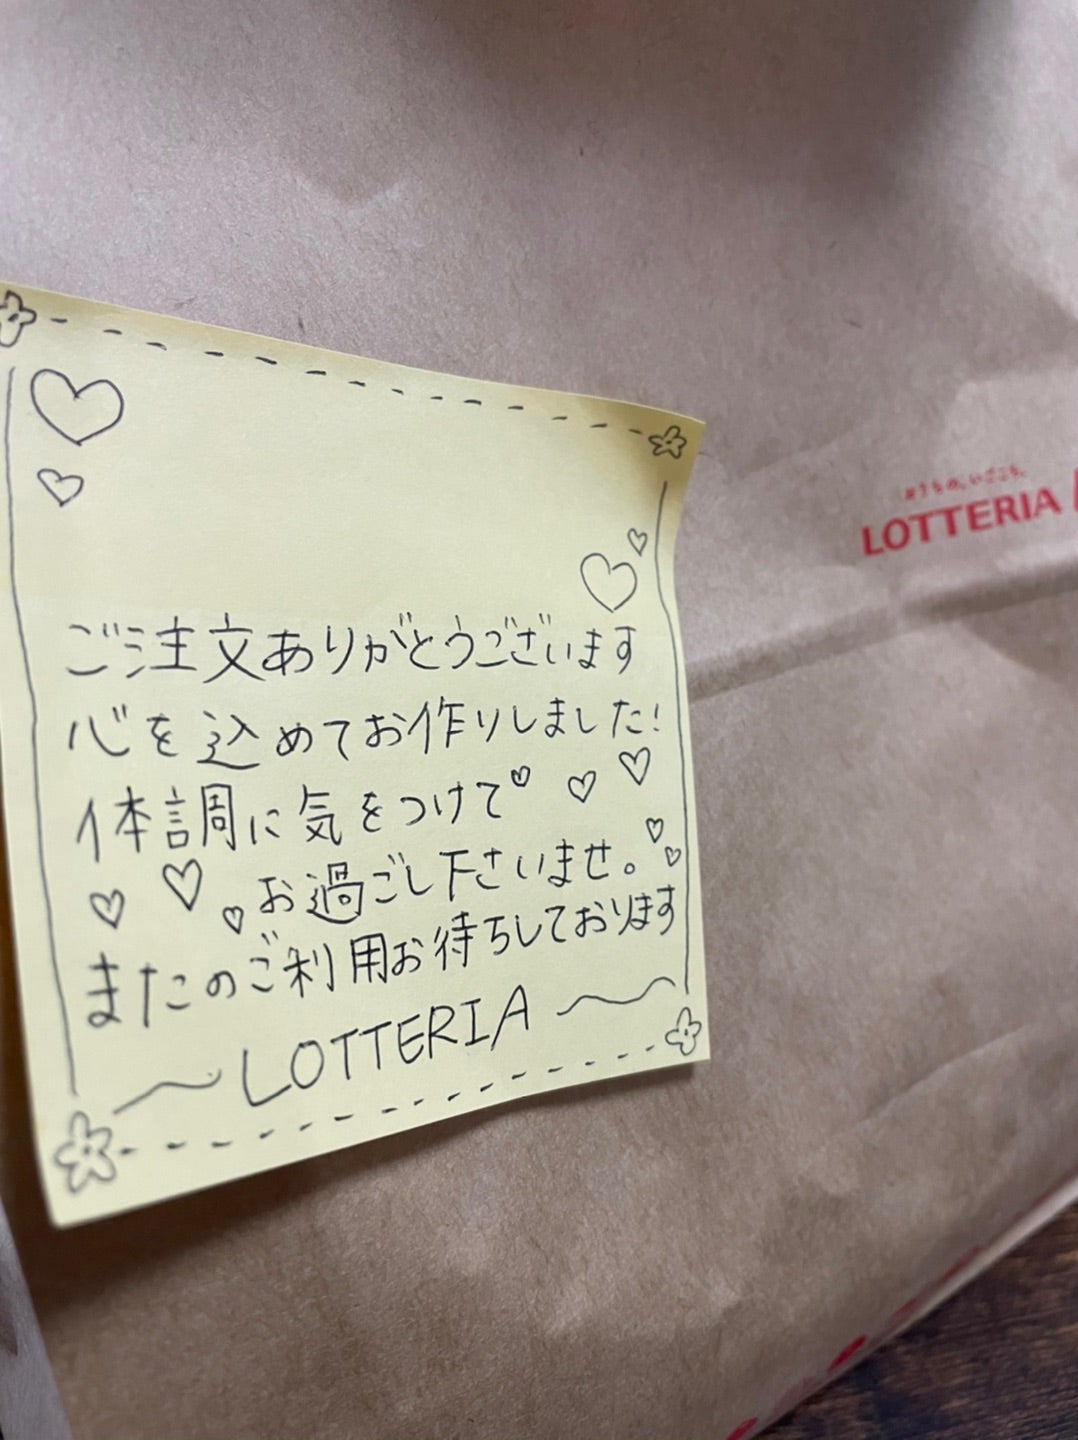 ご注文ありがとうございます
心を込めてお作りしました!
体調に気をつけて
お過ごし下さいませ。
またのご利用お待ちしております
LOTTERIA
おうちの、いごこち。
LOTTERIA